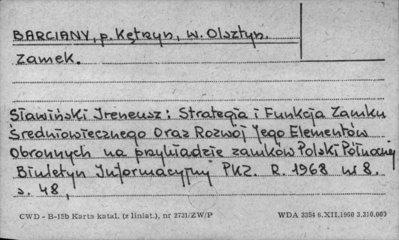 BARCIANY, p. Kętrzyn, w. Olsztyn.
Zamek.
Sławiński Ireneusz: Strategia i Funkcja Zamku
Średniowiecznego Oraz Rozwój Jego Elementów
Obronnych na przykładzie zamków Polski Północnej
Biuletyn Informacyjny PKZ. R. 1968 nr 8.
s. 48,
CWD - B-15b Karta katal. (z liniat.), nr 3731/ZW/P WDA 3354 6.XII.1960 3.210.000